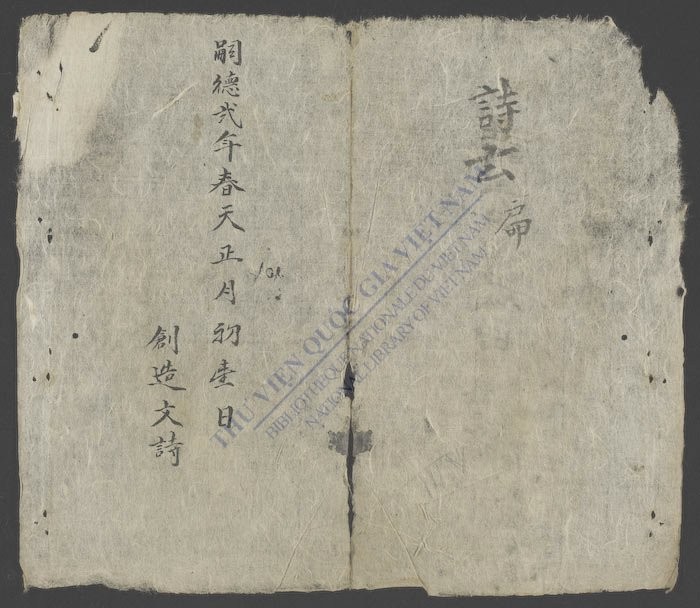 詩云
嗣德弍年春天正月初壹日
創造文詩
THƯ VIỆN QUỐC GIA VIỆT NAM
BIBLIOTHEQUE NATIONALE DU VIETNAM
NATIONAL LIBRARY OF VIETNAM